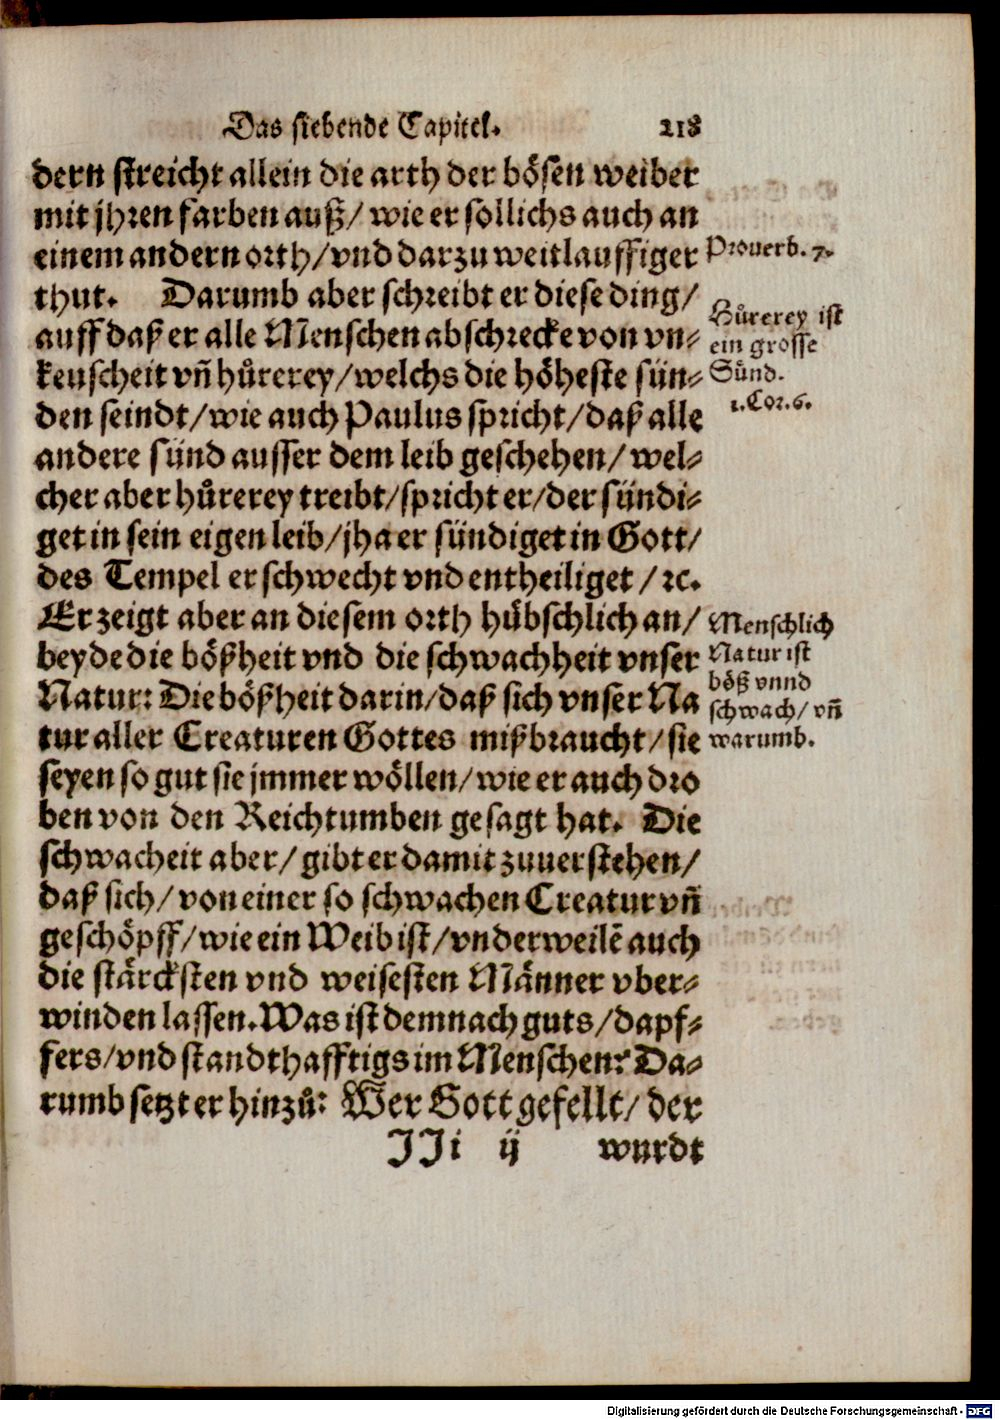 Das siebende Capitel. 218
dern streicht allein die arth der bösen weiber
mit jhren farben auß/ wie er sollichs auch an
einem andern orth/ vnd darzu weitlauffiger
thut. Darumb aber schreibt er diese ding/
auff daß er alle Menschen abschrecke von vn⸗
keuscheit vñ hůrerey/ welchs die höheste sün⸗
den seindt/ wie auch Paulus spricht/ daß alle
andere sünd ausser dem leib geschehen/ wel⸗
cher aber hůrerey treibt/ spricht er/ der sündi⸗
get in sein eigen leib/ jha er sündiget in Gott/
des Tempel er schwecht vnd entheiliget/ ꝛc.
Er zeigt aber an diesem orth hübschlich an/
beyde die bößheit vnd die schwachheit vnser
Natur: Die bößheit darin/ daß sich vnser Na
tur aller Creaturen Gottes mißbraucht/ sie
seyen so gut sie jmmer wöllen/ wie er auch dro
ben von den Reichtumben gesagt hat. Die
schwacheit aber/ gibt er damit zuuerstehen/
daß sich/ von einer so schwachen Creatur vñ
geschöpff/ wie ein Weib ist/ vnderweilē auch
die stärcksten vnd weisesten Männer vber⸗
winden lassen. Was ist demnach guts/ dapf⸗
fers/ vnd standthafftigs im Menschen? Da⸗
rumb setzt er hinzů: Wer Gott gefellt/ der
JJi ij wurdt
Prouerb. 7.
Hůrerey ist
ein grosse
Sünd.
1. Cor. 6.
Menschlich
Natur ist
böß vnnd
schwach/ vñ
warumb.
Digitalisierung gefördert durch die Deutsche Forschungsgemeinschaft - DFG